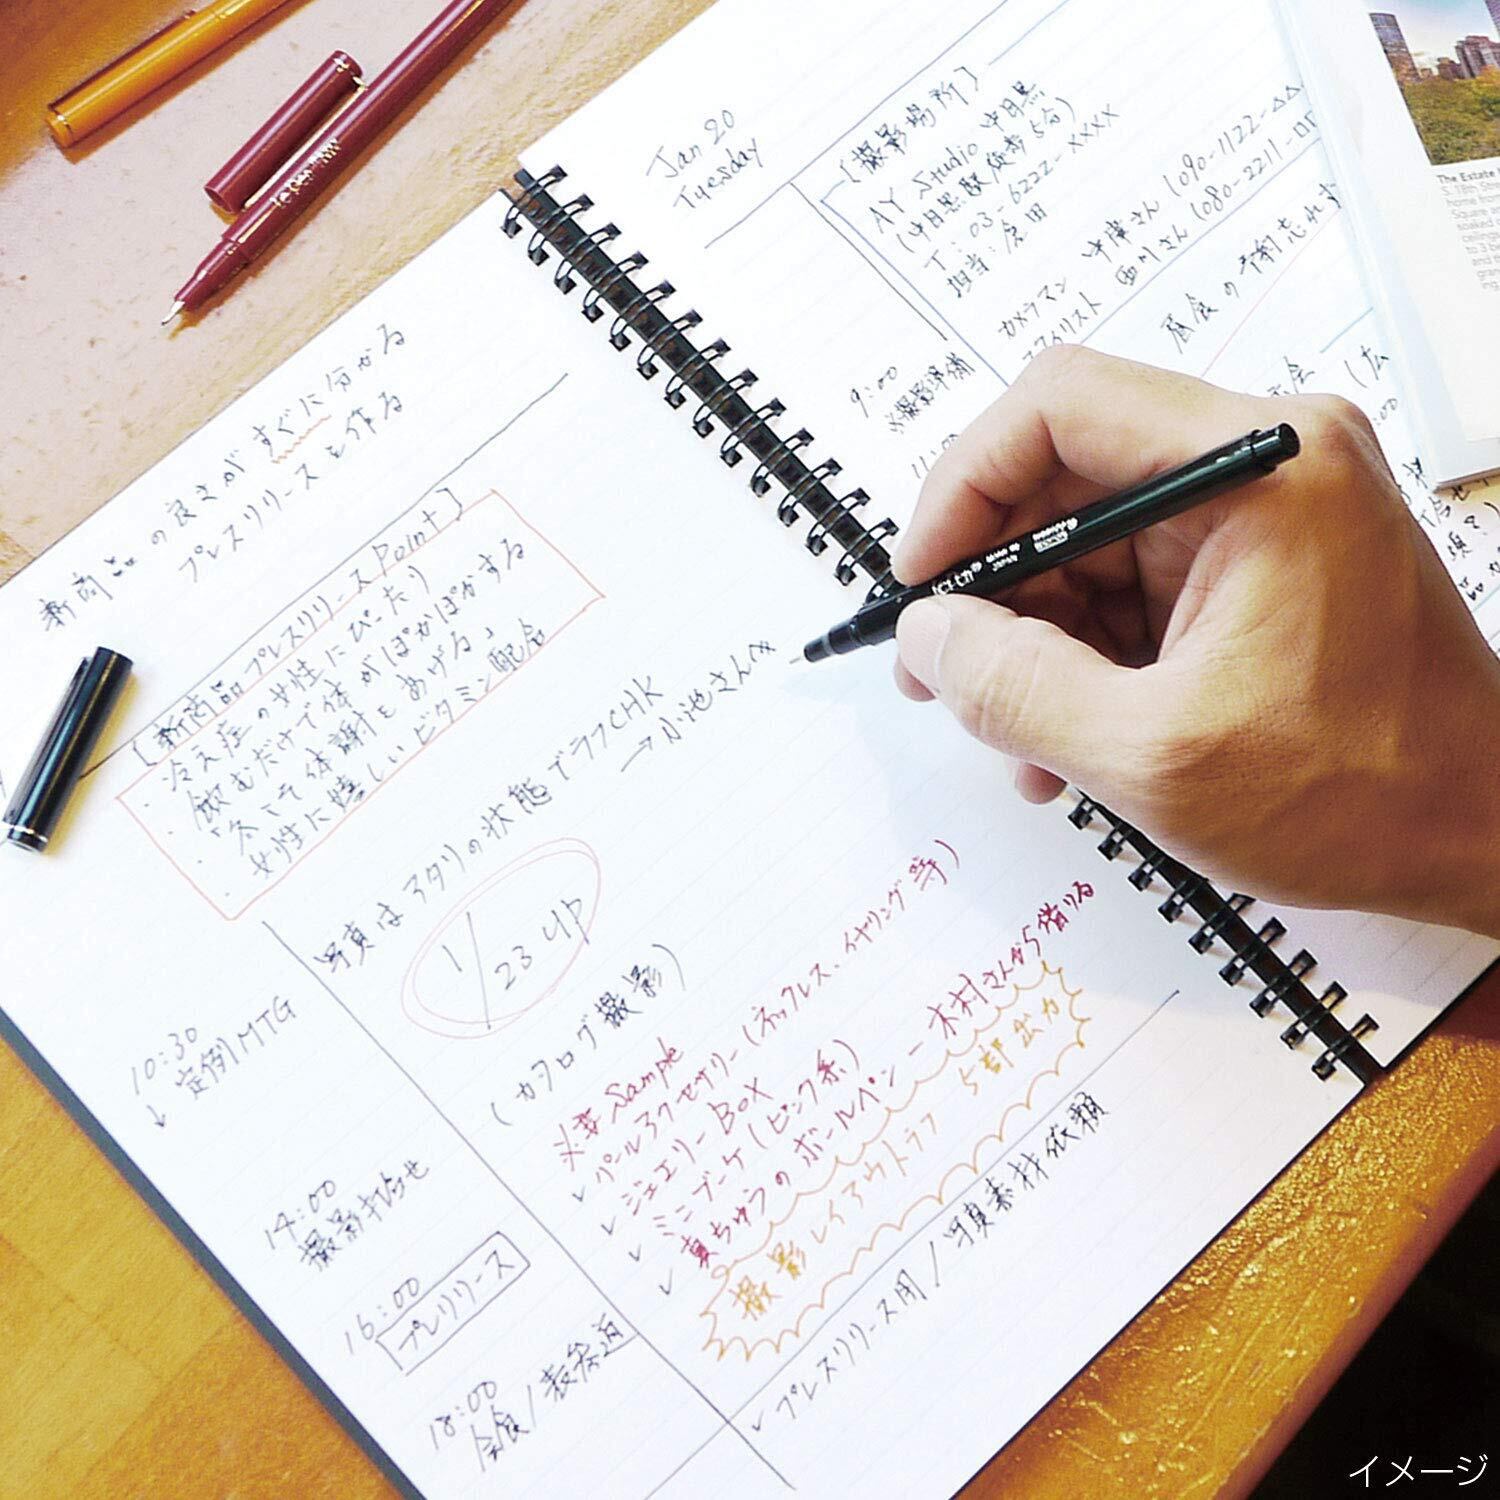 新商品の良さがすぐに分かる
プレスリリースを作る
[新商品プレスリリースPoint]
・冷え症の女性にぴったり
飲むだけで体がぽかぽかする
・「冬こそ体謝をあげる」
・女性に嬉しいビタミン配合
写真はアタリの状態でラフCHK
→小池さんへ
1/23 up
10:30
定例MTG
↓
(カタログ撮影)
※要Sample
✓パールアクセサリー(ネックレス、イヤリング等)
✓ジュエリーBOX
✓ミニブーケ(ピンク系)
✓真ちゅうのボールペン ー木村さんから借りる
撮影レイアウトラフ 5部出力
14:00
撮影打合せ
16:00
プレリリース
18:00
会食/表参道
✓プレスリリース用/写真素材依頼
Jan 20
Tuesday
[撮影場所]
AY Studio 中目黒
(中目黒駅/徒歩5分)
T:03-6222-xxxx
担当:倉田
カメラマン 中津さん(090-1122-△△
スタイリスト 西川さん(080-2211-□□
昼食の手配忘れず
9:00
※撮影準備
The Estate
S. 18th Stre
home from
Square a
soaked
to 3 be
and th
gran
ing.
JAPAN
イメージ